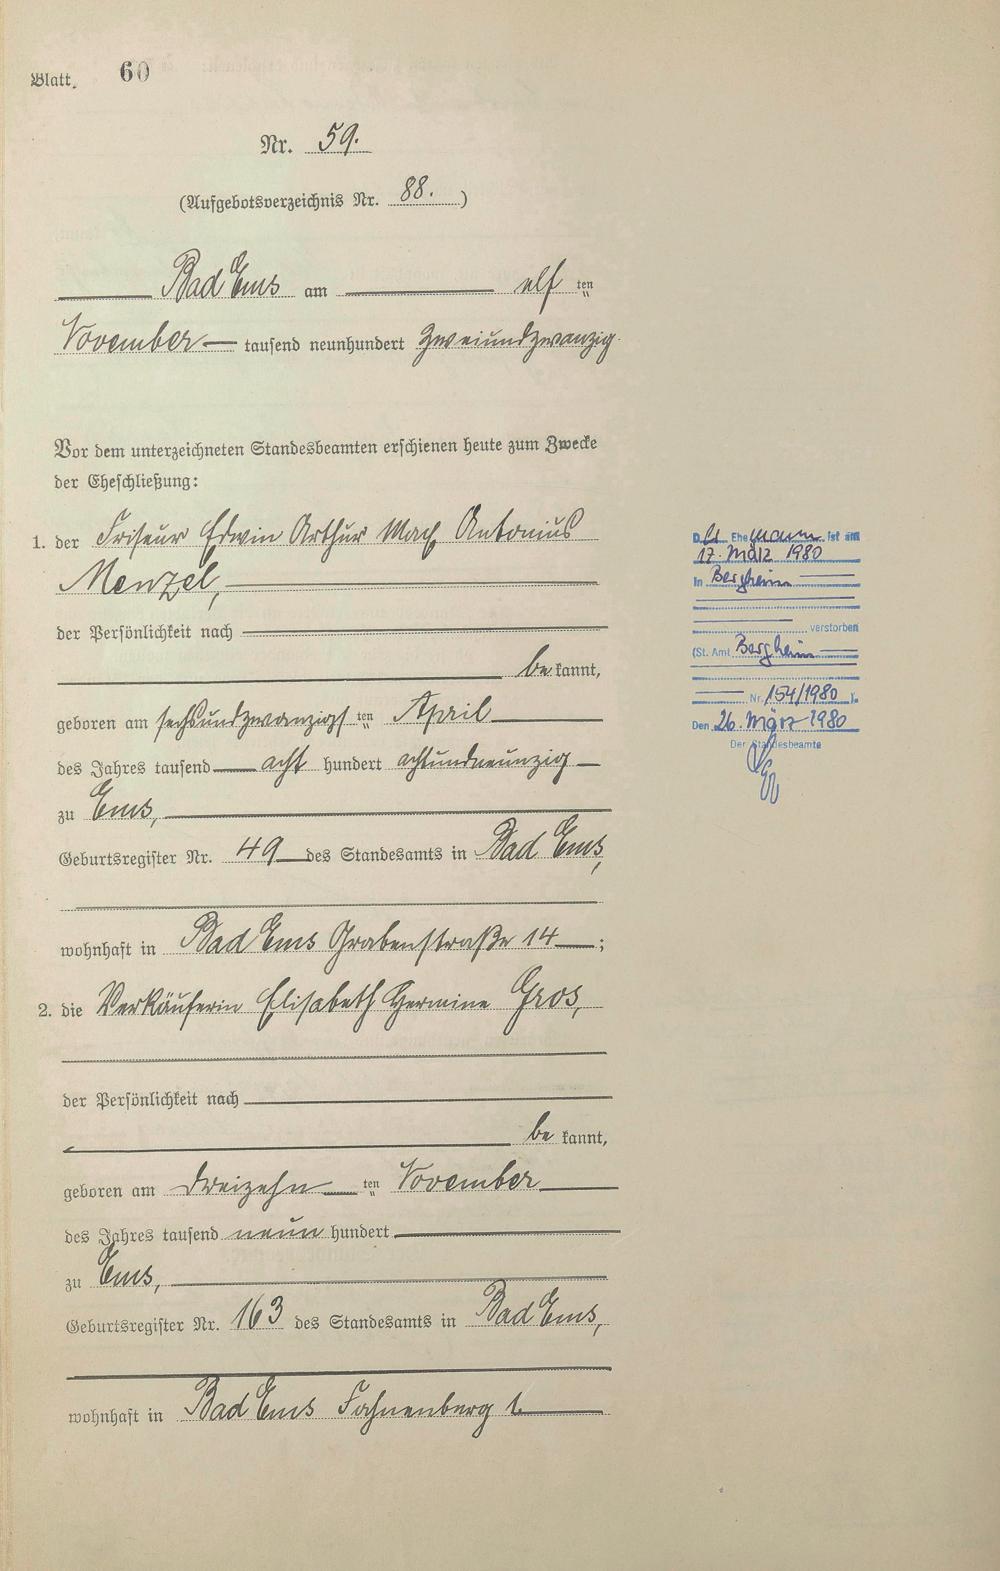 Blatt. 60
Nr. 59.
(Aufgebotsverzeichnis Nr. 88.)
Bad Ems am elf ten
November tausend neunhundert zweiundzwanzig.
Vor dem unterzeichneten Standesbeamten erschienen heute zum Zwecke
der Eheschließung:
1. der Friseur Edwin Arthur Antonius
Menzel,
der Persönlichkeit nach
be kannt,
geboren am sechsundzwanzigs ten April
des Jahres tausend acht hundert achtundneunzig
zu Ems,
Geburtsregister Nr. 49 des Standesamts in Bad Ems,
wohnhaft in Bad Ems Grabenstraße 14 ;
2. die Verkäuferin Elisabeth Hermine Gros,
der Persönlichkeit nach
be kannt,
geboren am dreizehn ten November
des Jahres tausend neun hundert
zu Ems,
Geburtsregister Nr. 163 des Standesamts in Bad Ems,
wohnhaft in Bad Ems Fahnenberg
Der Ehemann ist am
17. März 1980
in Bergheim
verstorben
(St. Amt Bergheim
Nr. 154/1980 ).
Den 26. März 1980
Der Standesbeamte